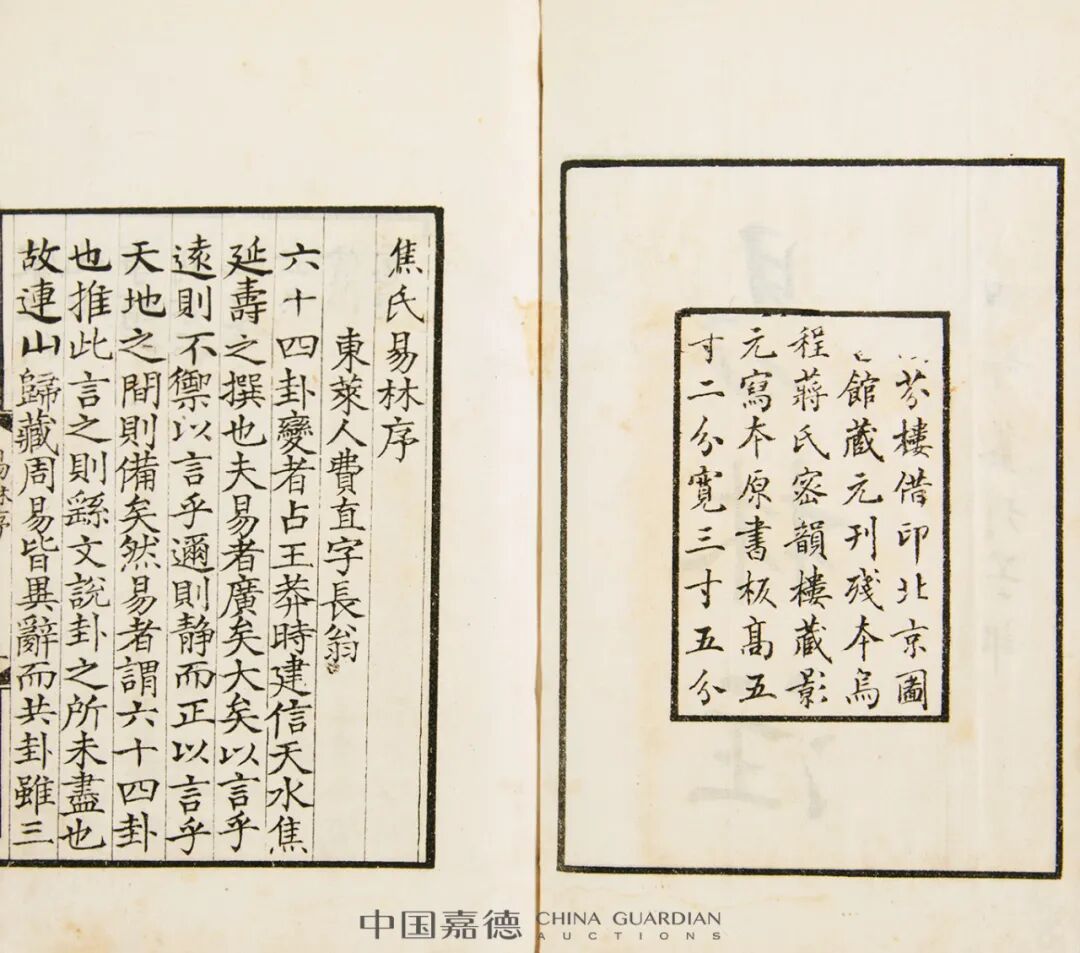 芬樓借印北京圖
館藏元刊殘本烏
程蔣氏密韻樓藏影
元寫本原書板高五
寸二分寬三寸五分
焦氏易林序
東萊人費直字長翁
六十四卦變者占王莽時建信天水焦
延壽之撰也夫易者廣矣大矣以言乎
遠則不禦以言乎邇則静而正以言乎
天地之間則備矣然易者謂六十四卦
也推此言之則繇文說卦之所未盡也
故連山歸藏周易皆異辭而共卦雖三
易林序
中国嘉德 CHINA GUARDIAN
AUCTIONS